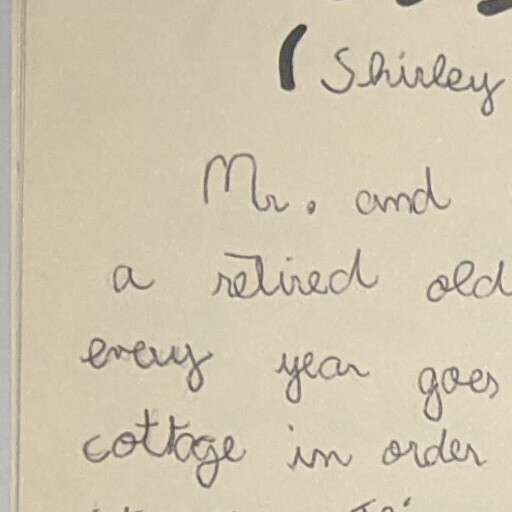 ( Shirley
Mr. and
a retired old
every year goes
cottage in order